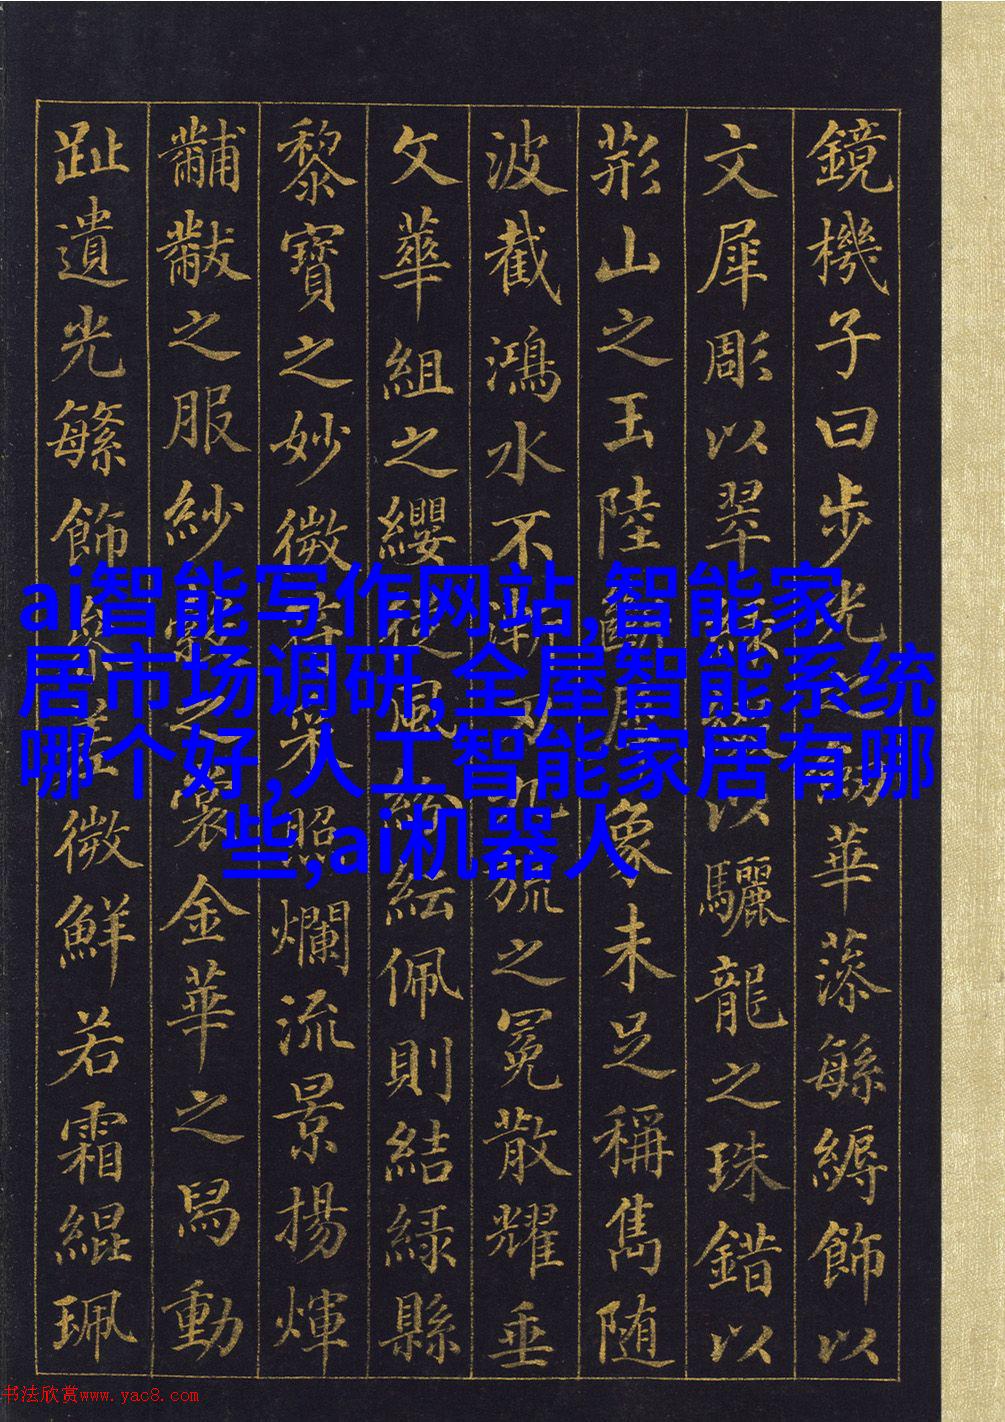 鏡機子曰步光之華藻緐縟飾以
文犀彫以翠緑以驪龍之珠錯以
荊山之玉陸斷犀象未足稱雋随
波截鴻水不漸刃九旒之冕散耀垂
文華組之纓從風紛紜佩則結緑縣
黎寶之妙微符采照爛流景揚煇
黼黻之服紗縠之裳金華之舄動
趾遺光緐飾參差微鮮若霜緄珮
ai智能写作网站,智能家
居市场调研,全屋智能系统
哪个好,人工智能家居有哪
些,ai机器人
书法欣赏www.yac8.com